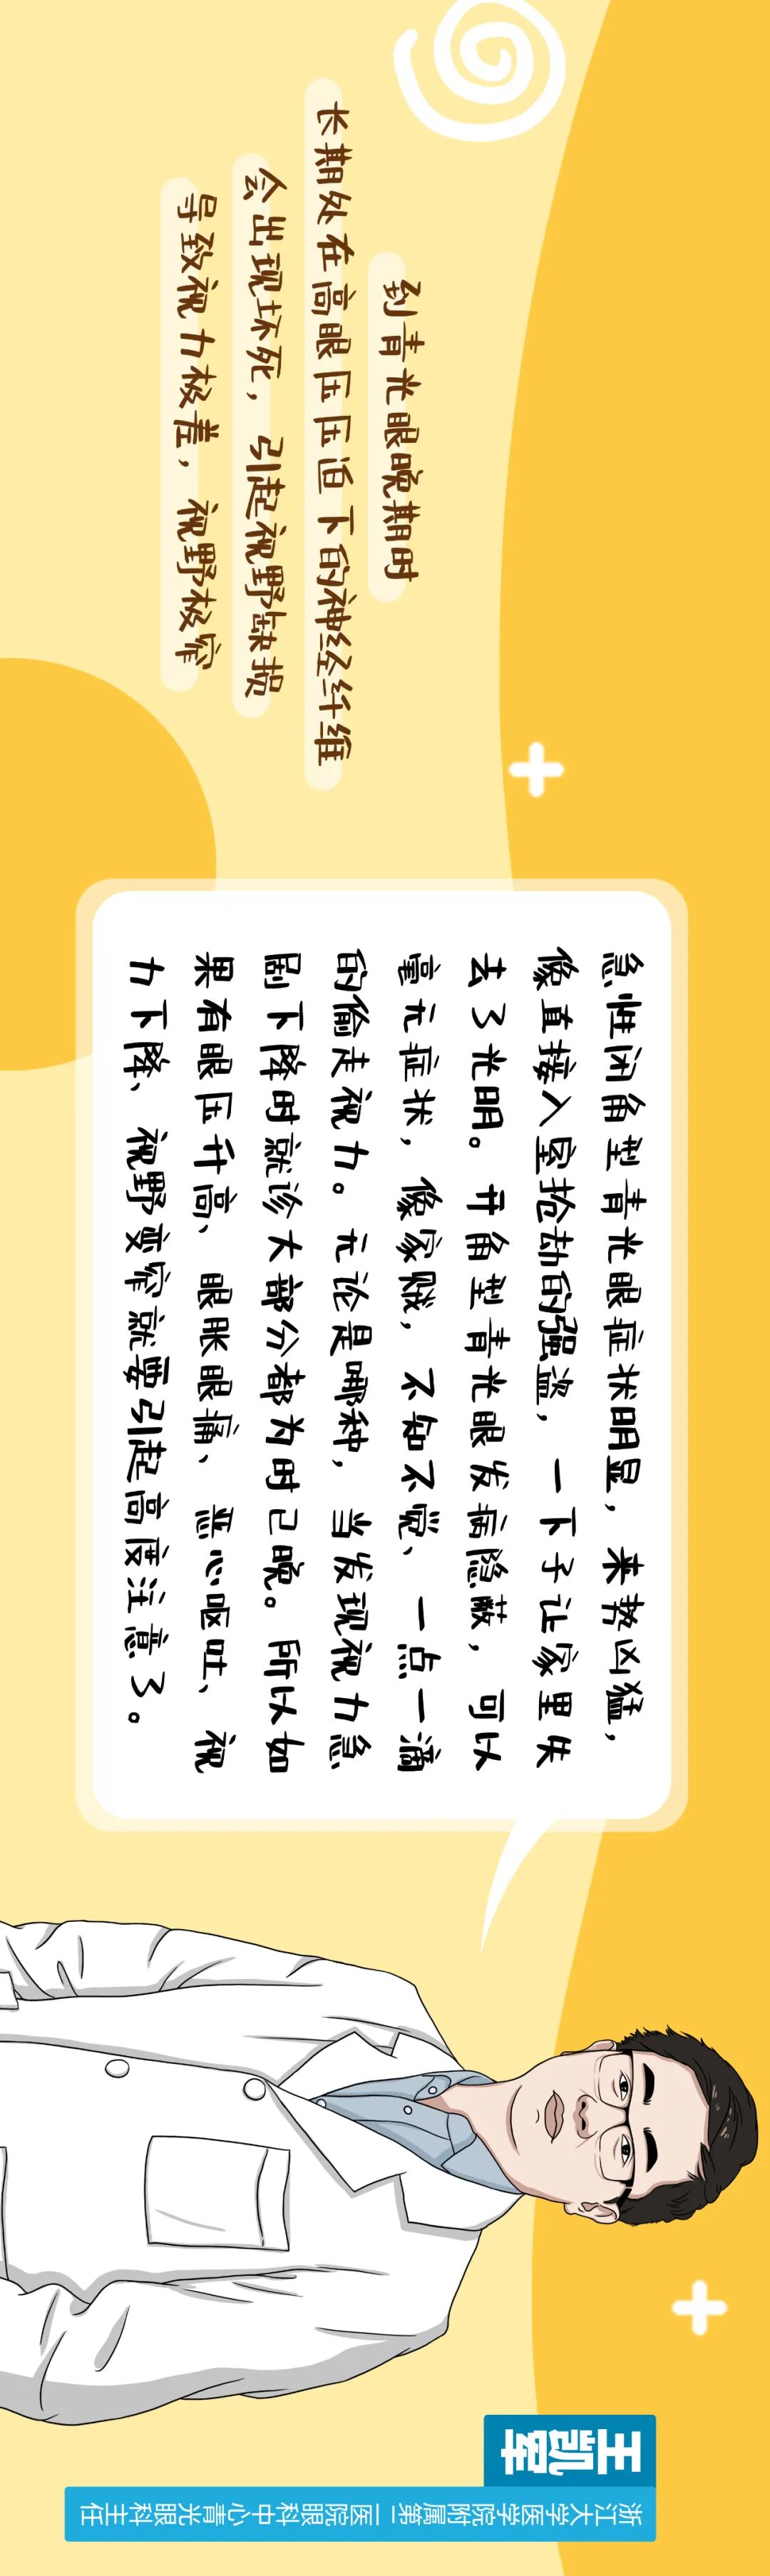 到青光眼晚期时
长期处在高眼压压迫下的神经纤维
会出现坏死，引起视野缺损
导致视力极差，视野极窄
急性闭角型青光眼症状明显，来势凶猛，
像直接入室抢劫的强盗，一下子让家里失
去了光明。开角型青光眼发病隐蔽，可以
毫无症状，像家贼，不知不觉、一点一滴
的偷走视力。无论是哪种，当发现视力急
剧下降时就诊大部分都为时已晚。所以如
果有眼压升高、眼胀眼痛、恶心呕吐、视
力下降、视野变窄就要引起高度注意了。
王凯军
浙江大学医学院附属第二医院眼科中心青光眼科主任